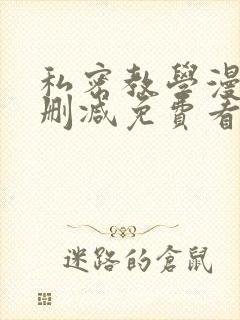 私密教學漫
刪減免費看
迷路的倉鼠